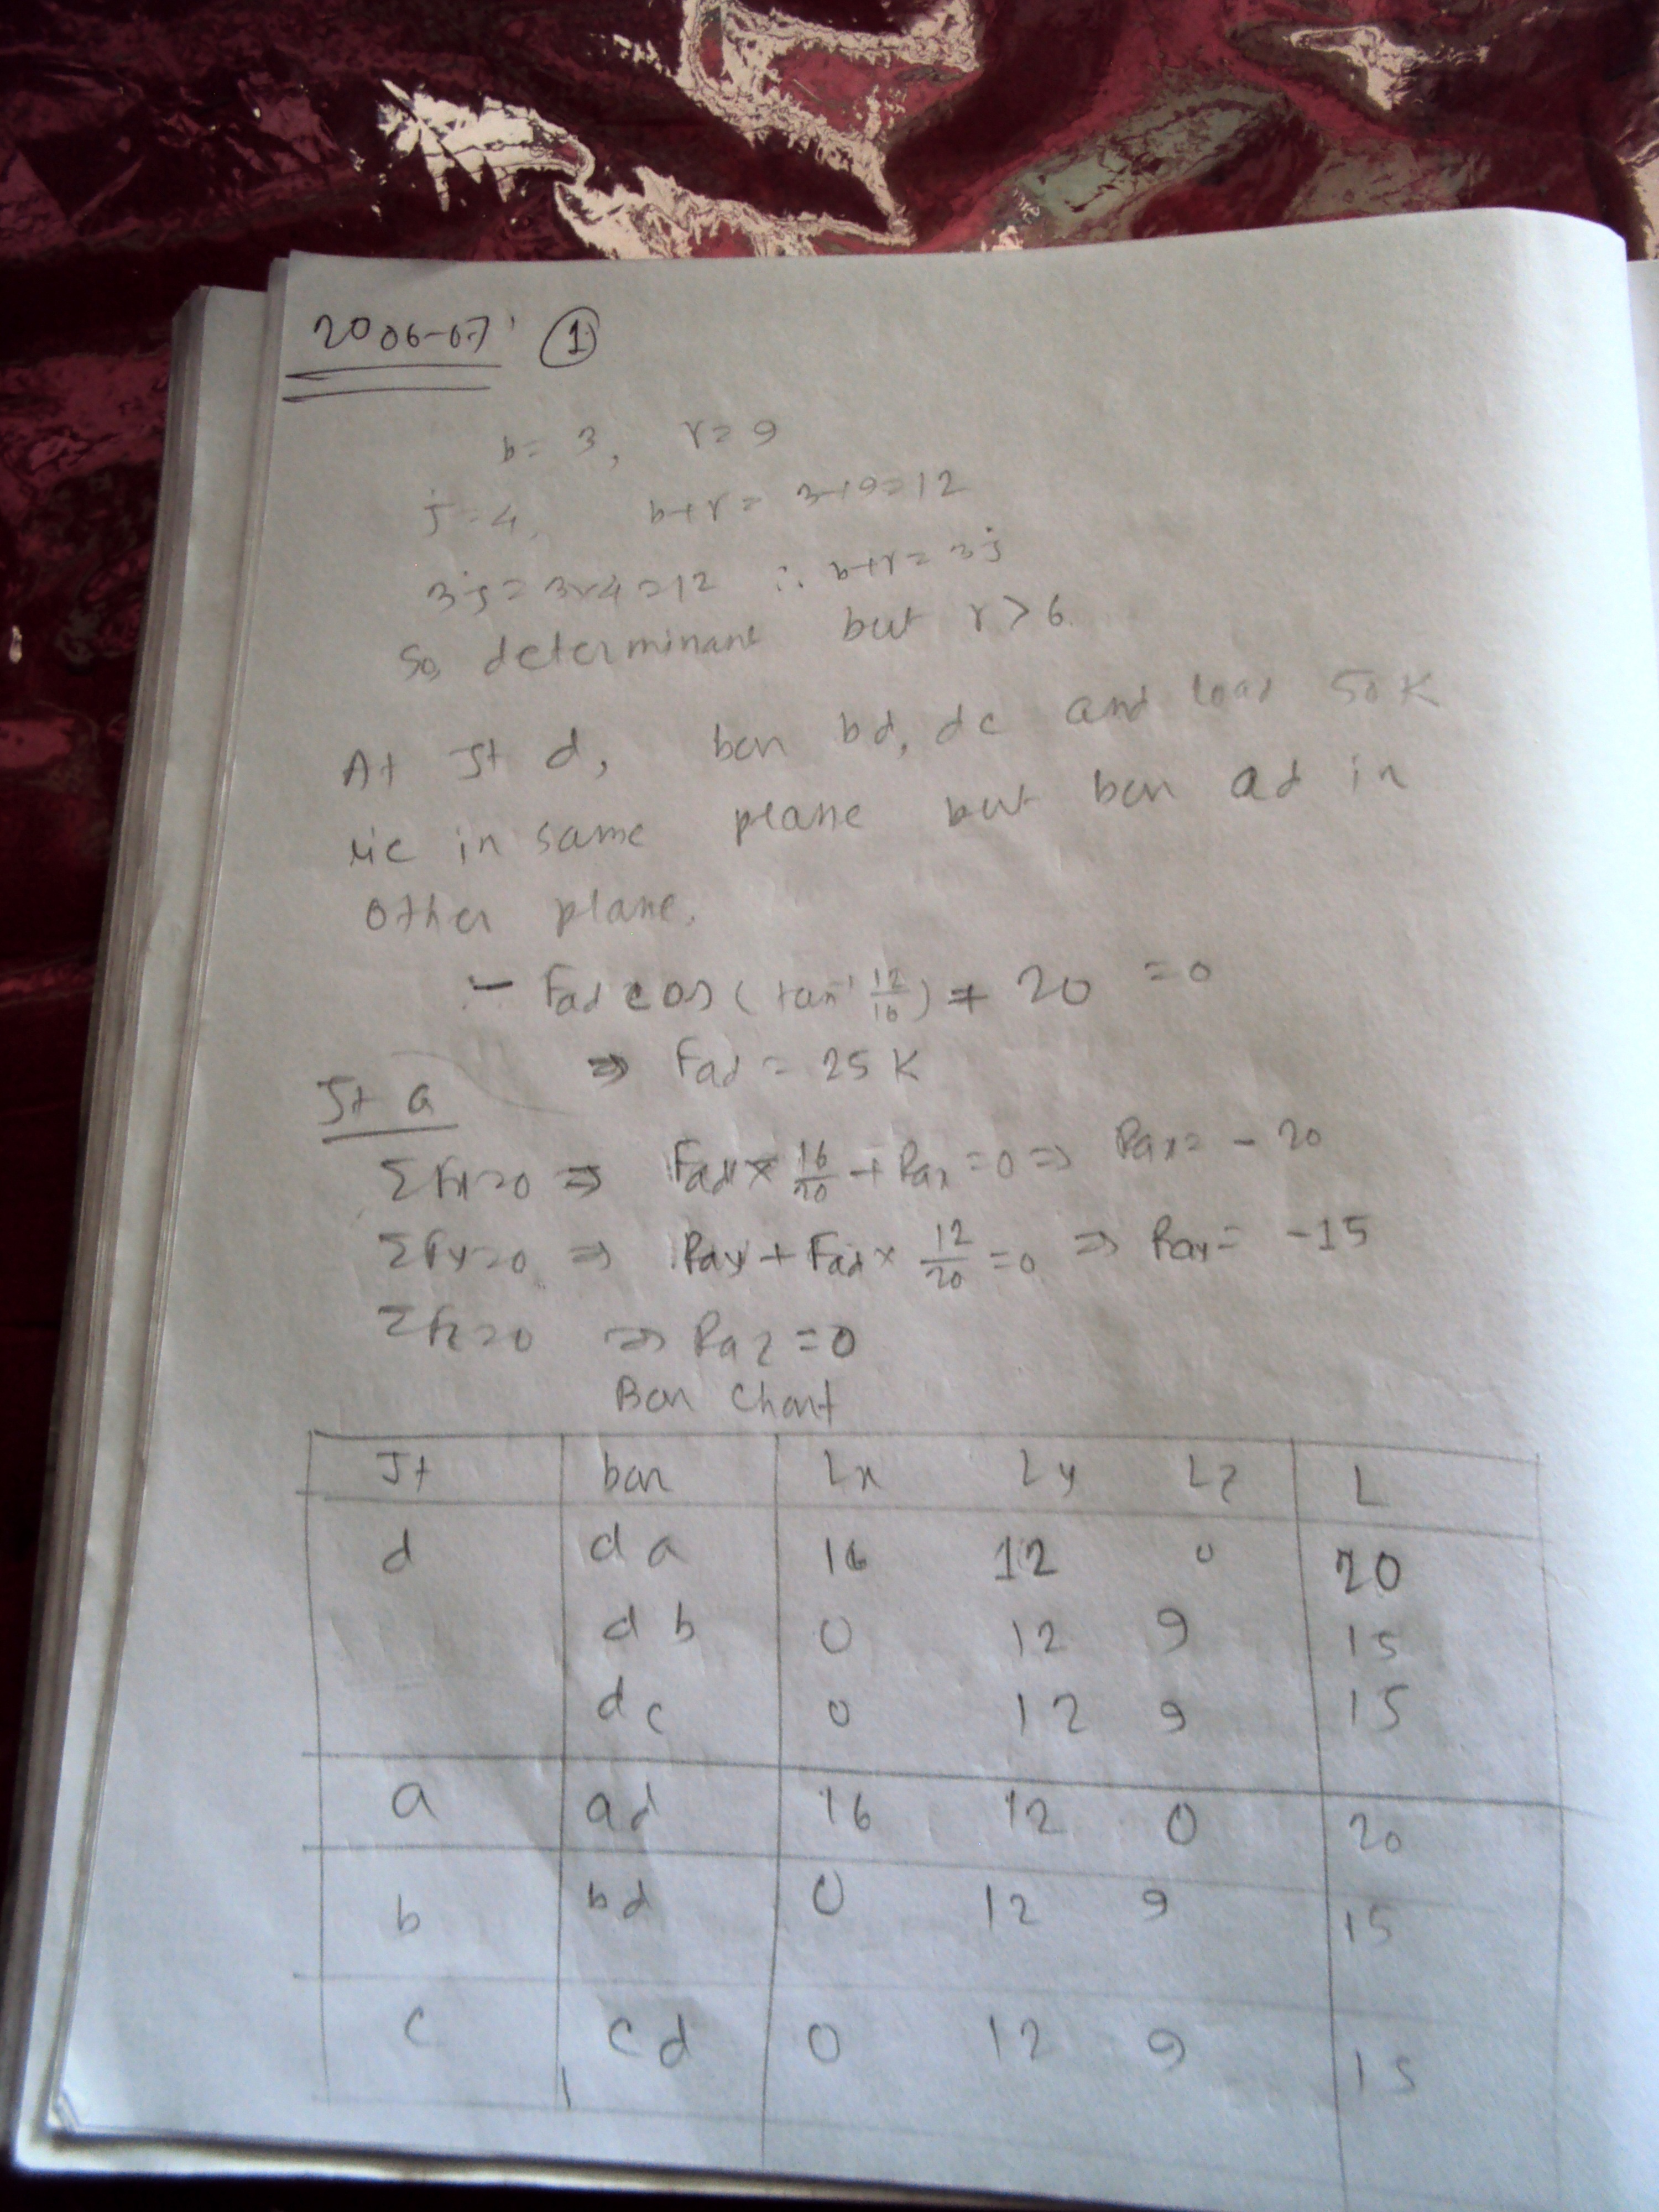 2006-07' 1
b = 3, r = 9
j = 4, b+r = 3+9 = 12
3j = 3×4 = 12 ∴ b+r = 3j
So, determinant but r > 6
At Jt d, bar bd, dc and load 50 K
lie in same plane but bar ad in
other plane.
∴ - Fad cos (tan⁻¹ 12/16) + 20 = 0
⇒ Fad = 25 K
Jt a
ΣFx=0 ⇒ Fad × 16/20 + Rax = 0 ⇒ Rax = - 20
ΣFy=0 ⇒ Ray + Fad × 12/20 = 0 ⇒ Ray = - 15
ΣFz=0 ⇒ Raz = 0
Bar Chart
Jt bar Lx Ly Lz L
d da 16 12 0 20
db 0 12 9 15
dc 0 12 9 15
a ad 16 12 0 20
b bd 0 12 9 15
c cd 0 12 9 15